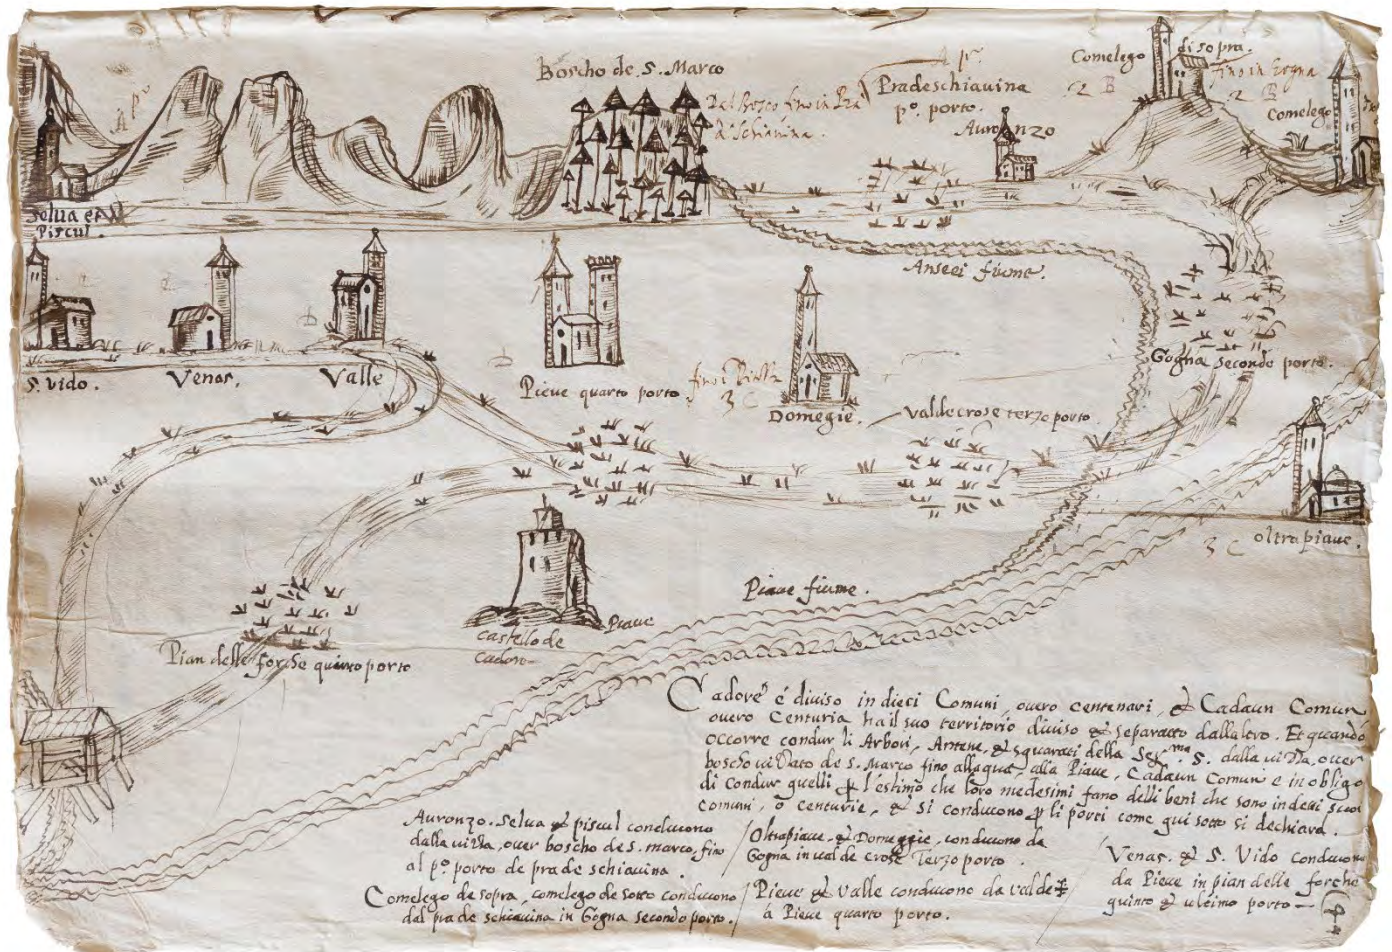 Boscho de S. Marco
Dal Bosco fino in Pra
d'Schiavina.
A pº
Pradeschiavina
pº. porto.
Auronzo
Comelego di sopra.
2 B
fino in Gogna
2 B
Comelego
A pº
Selva et
Piscul.
Anseei fiume.
S. Vido.
Venas.
Valle
Pieve quarto porto
3 C
Domegie.
Valdecrose terzo porto
Gogna secondo porto.
oltrapiave.
3 C
Piave fiume.
castello de
cadore
Pieve
Pian delle forche quinto porto
Cadore é diviso in dieci Comuni, overo centenari, & Cadaun Comun
overo Centuria ha il suo territorio diviso & separatto dall altro. Et quando
occorre condur li Arbori, Antene, & squarati della Ser.ma S. dalla vizza, over
boscho vizzato de S. Marco fino all aqua, alla Piave, Cadaun Comun e in obligo
di condur quelli ꝑ l'estimo che loro medesimi fano delli beni che sono in detti suoi
comuni, o centurie, & si conducono ꝑ li porti come qui sotto si dechiara.
Auronzo. Selva & piscul conducono
dalla vizza, over boscho de S. marco, fino
al pº porto de pra de schiavina.
Comelego de sopra, comelego de sotto conducono
dal pra de schiavina in Gogna secondo porto.
Oltrapiave, & Domeggie, conducono da
Gogna in val de crose Terzo porto.
Pieve & Valle conducono da val de ☩
a Pieve quarto porto.
Venas. & S. Vido conducono
da Pieve in pian delle forche
quinto & ultimo porto